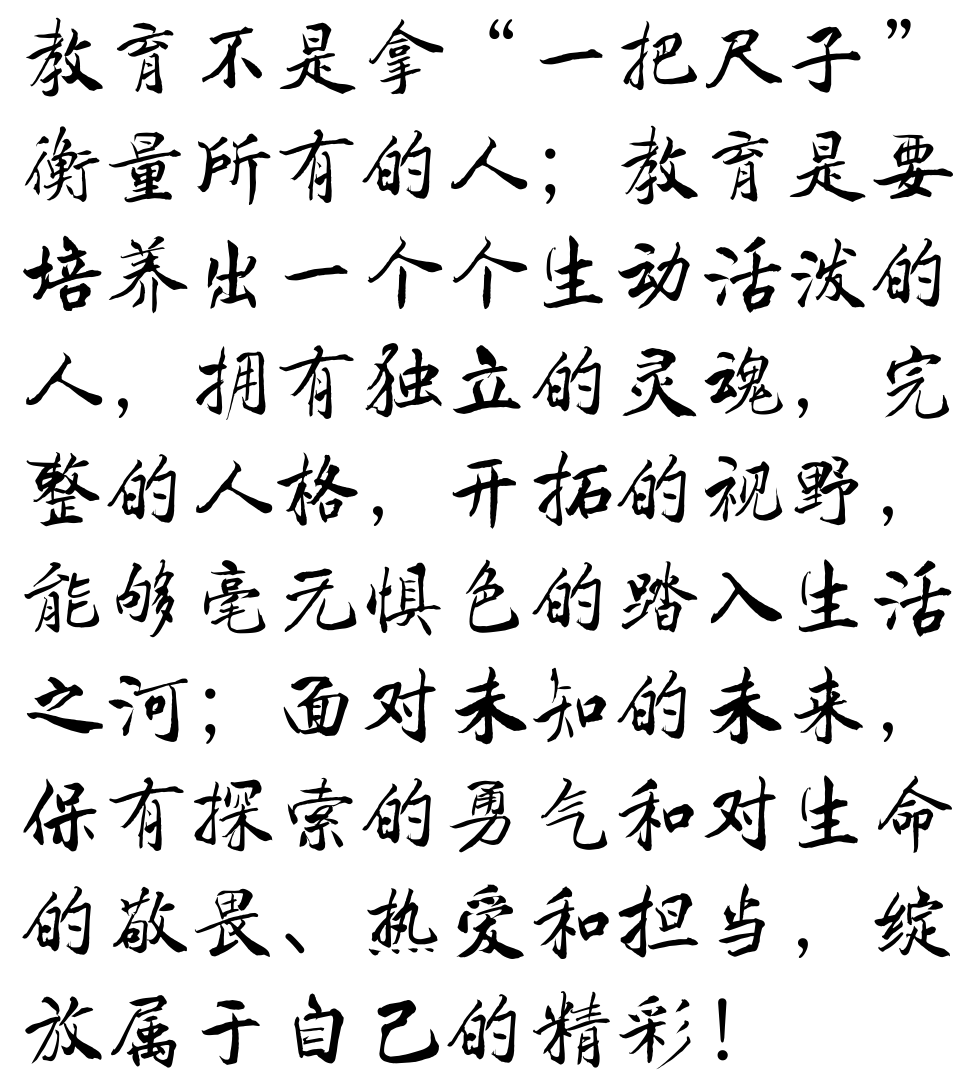 教育不是拿“一把尺子”
衡量所有的人；教育是要
培养出一个个生动活泼的
人，拥有独立的灵魂，完
整的人格，开拓的视野，
能够毫无惧色的踏入生活
之河；面对未知的未来，
保有探索的勇气和对生命
的敬畏、热爱和担当，绽
放属于自己的精彩！